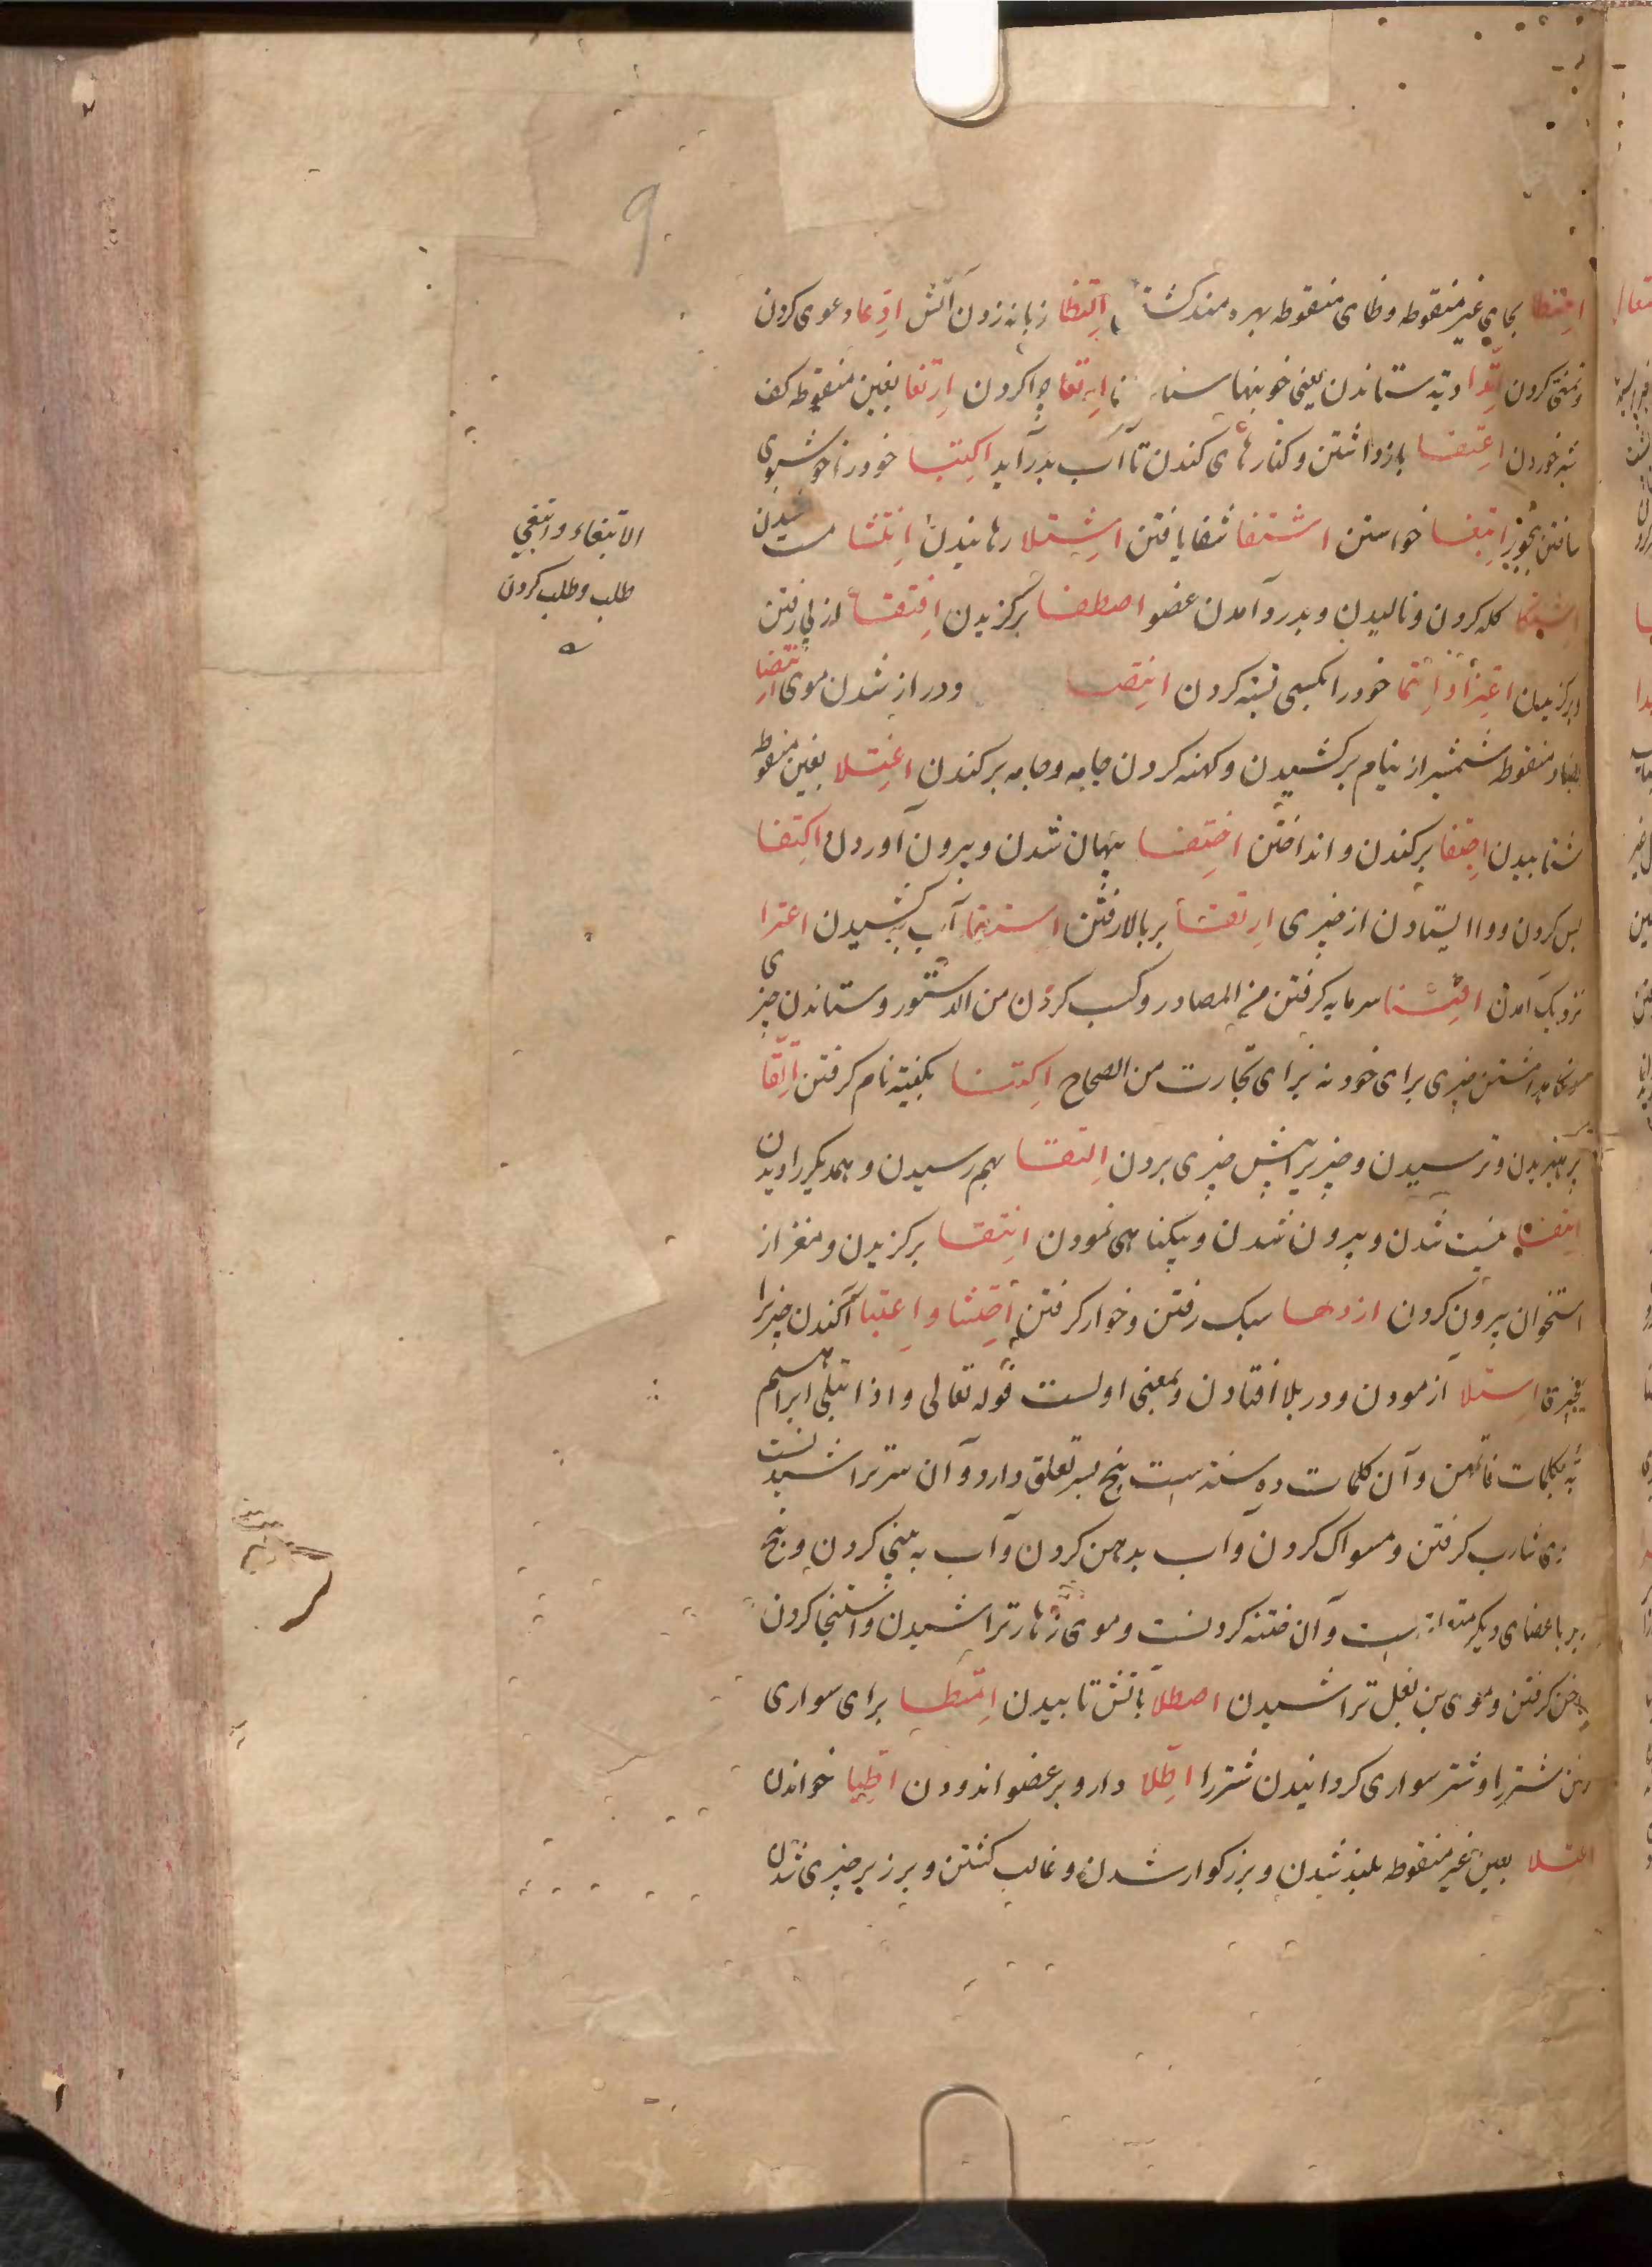 احتظا بحای غیر منقوطه و ظای منقوطه بهره مند کشتن التظا زبانه زدن آتش ادعا دعوی کردن
و تمنی کردن اتدا دیه ستاندن یعنی خونبها ارتعا چرا کردن ارتغا بغین منقوطه کف
شیر خوردن اعتفا بازداشتن و کنارهای کندن تا آب بدر آید اکتبا خود را خوشبوی
ساختن ببخور ابتغا خواستن اشتفا شفا یافتن اشتلا رهانیدن انتشا مست شدن
اشتکا کله کردن و نالیدن و بدرد آمدن عضو اصطفا برکزیدن اقتفا از پی رفتن
و برکزیدن اعتزا و انتما خود را بکسی نسبت کردن انتصا و دراز شدن موی انتضا
بضاد منقوطه شمشیر از نیام برکشیدن و کهنه کردن جامه و جامه برکندن اغتلا بغین منقوطه
شتابیدن اجتفا برکندن و انداختن اختفا پنهان شدن و بیرون آوردن اکتفا
بس کردن و وا ایستادن از چیزی ارتقا بر بالا رفتن استقا آب کشیدن اعترا
نزدیک آمدن اقتنا سرمایه کرفتن من المصادر و کسب کردن من الدستور و ستاندن چیزی
و نکاهداشتن چیزی برای خود نه برای تجارت من الصحاح اکتنا بکنیه نام کرفتن اتقا
پرهیزیدن و ترسیدن و چیزیرا پیش چیزی بردن التقا بهم رسیدن و همدیکر را دیدن
انتفا نیست شدن و بیرون شدن و بیکناهی نمودن انتقا برکزیدن و مغز از
استخوان بیرون کردن ازدها سبک رفتن و خوار کرفتن احتشا و اعتبا آکندن چیزیرا
بچیزی ابتلا آزمودن و در بلا افتادن و بمعنی اولست قوله تعالی و اذ ابتلی ابراهیم
ربه بکلمات فاتمهن و آن کلمات ده سنت است پنج بسر تعلق دارد و آن سر تراشیدنست
و موی شارب کرفتن و مسواک کردن و آب بدهن کردن و آب به بینی کردن و پنج
دیکر باعضای دیکر متعلق است و آن ختنه کردنست و موی زهار تراشیدن و استنجا کردن
و ناخن کرفتن و موی بن بغل تراشیدن اصطلا بآتش تابیدن امتطا برای سواری
کرفتن شتر را و شتر سواری کردانیدن شتر را اطلا دارو بر عضو اندودن اطبا خواندن
اعتلا بعین غیر منقوطه بلند شدن و بزرکوار شدن و غالب کشتن و بر زبر چیزی شدن
الابتغاء و ابتغی
طلب و طلب کردن